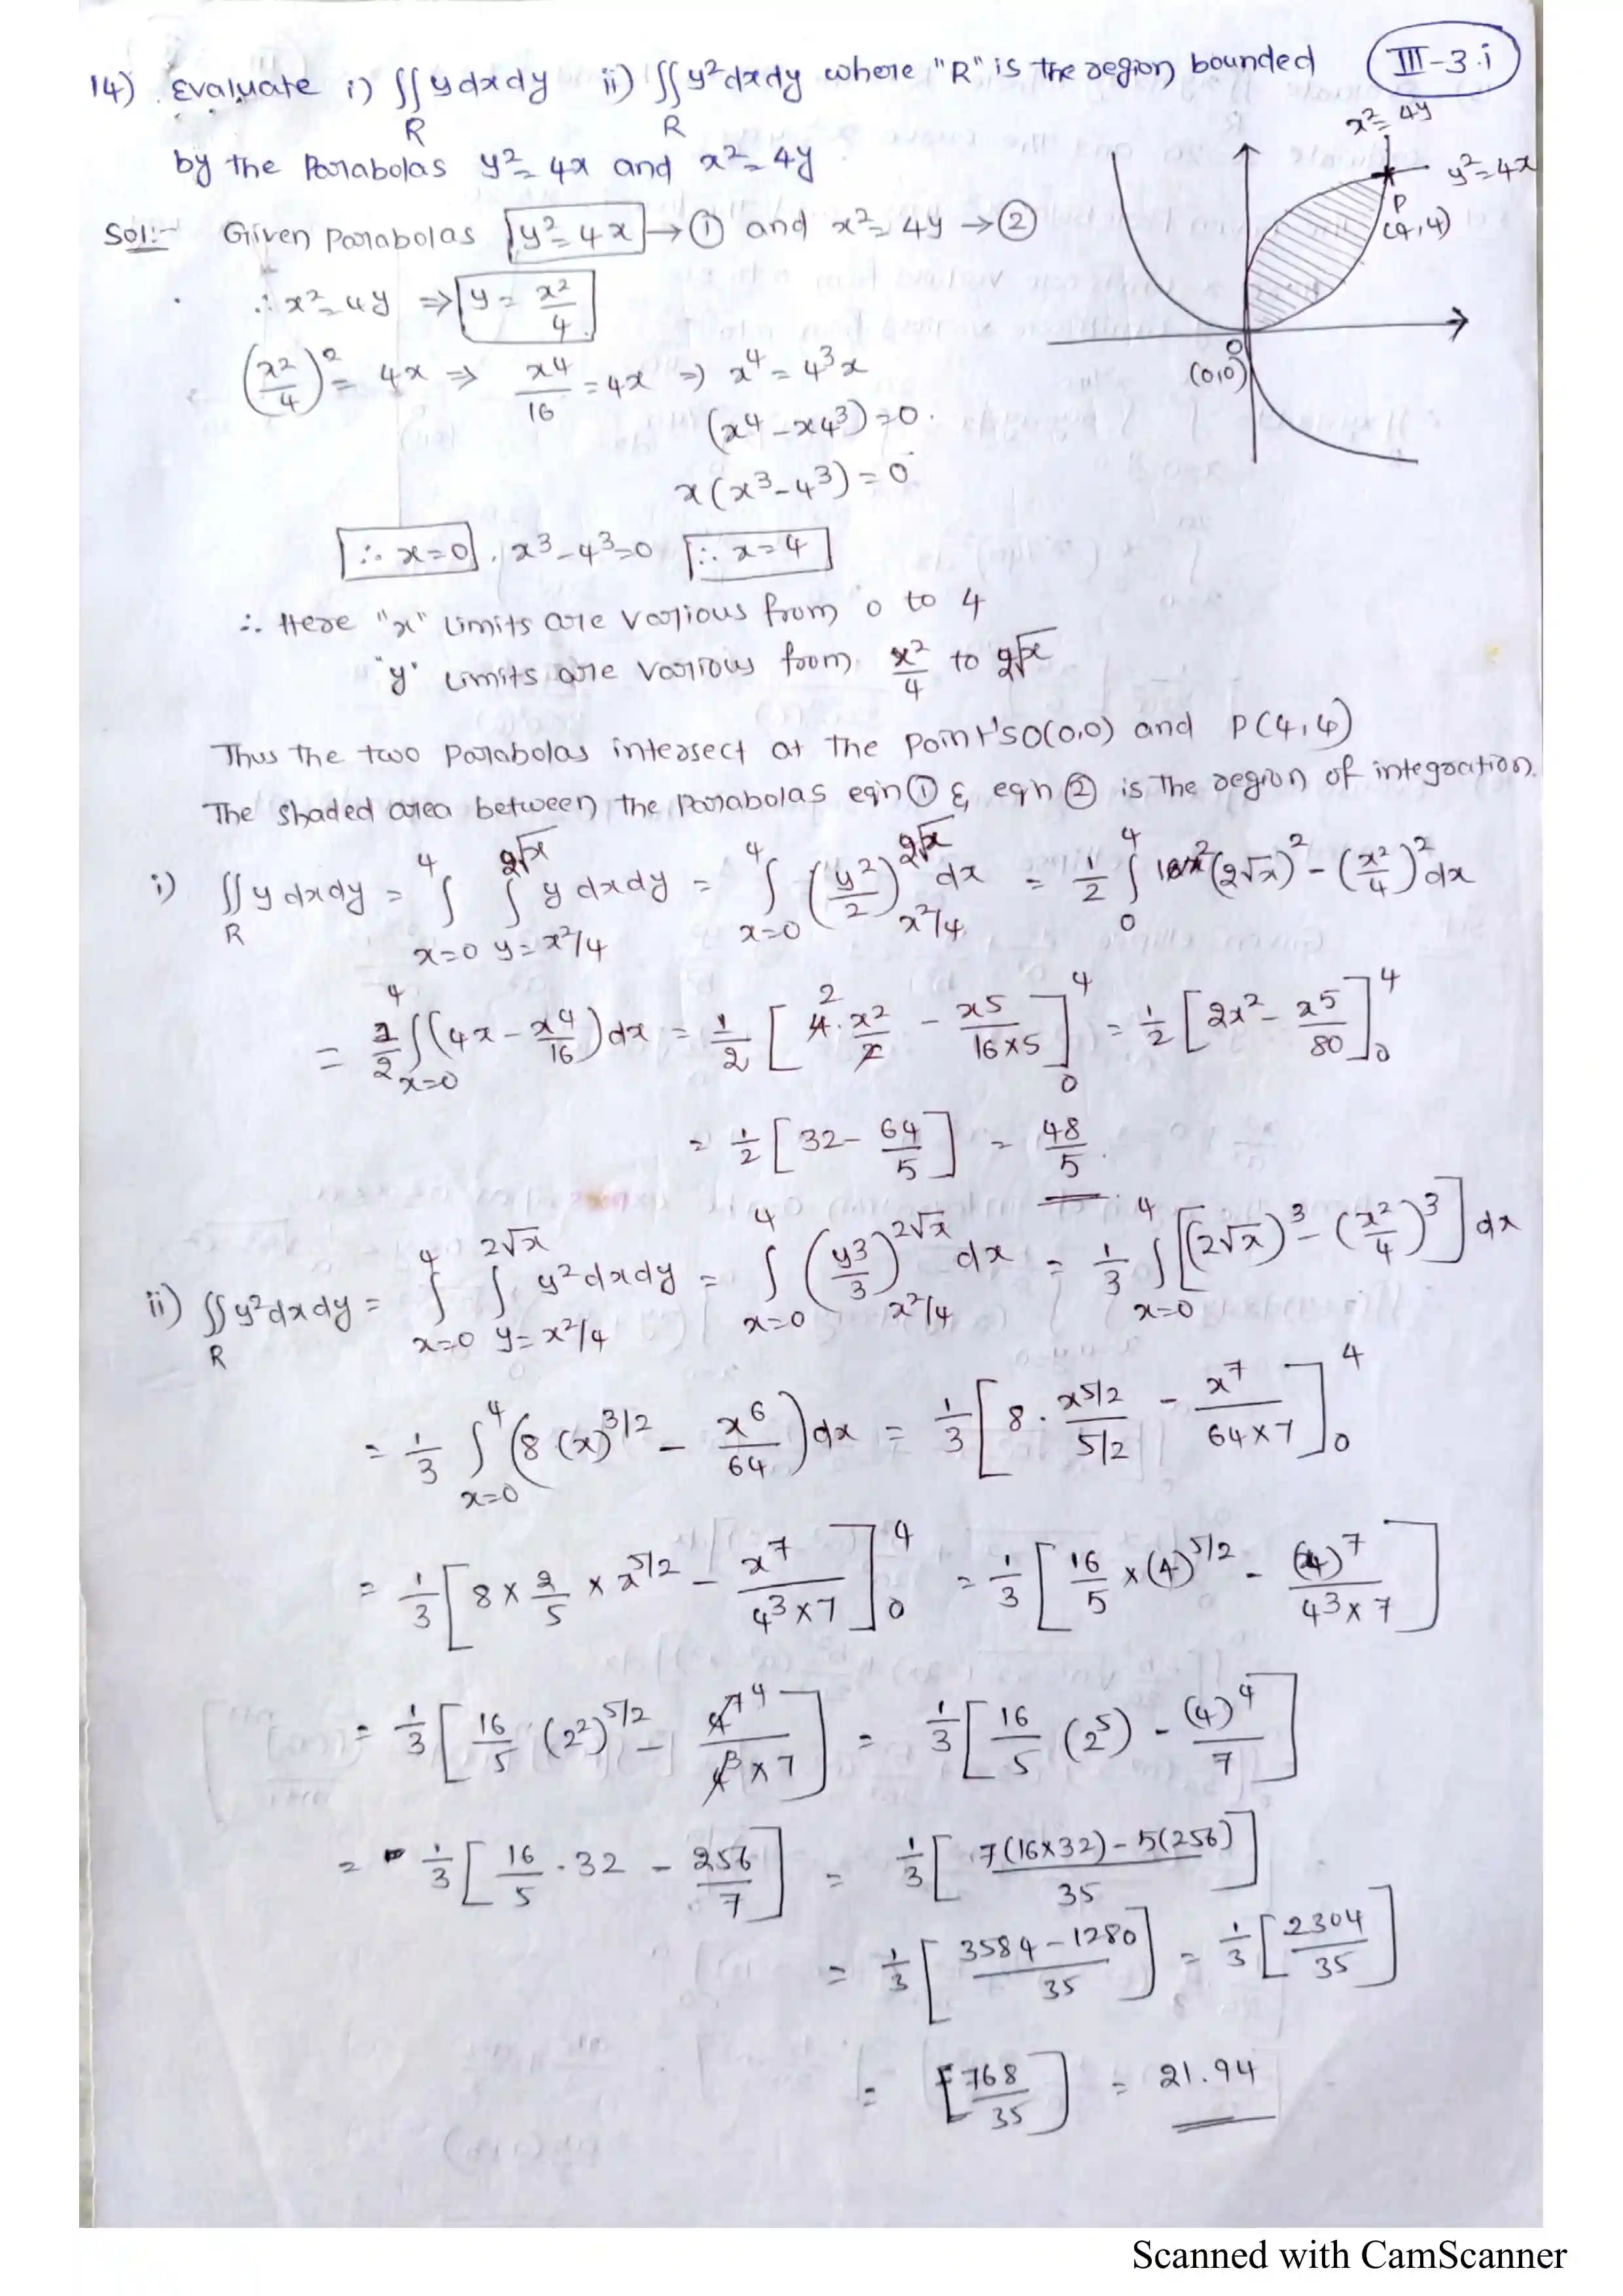 14) Evaluate i) ∬_R y dx dy ii) ∬_R y² dx dy where "R" is the region bounded
III-3.i
by the Parabolas y² = 4x and x² = 4y
x² = 4y
y² = 4x
P
(4,4)
O
(0,0)
Sol:- Given Parabolas y² = 4x → ① and x² = 4y → ②
∴ x² = 4y ⇒ y = x²/4
(x²/4)² = 4x ⇒ x⁴/16 = 4x ⇒ x⁴ = 4³x
(x⁴ - x4³) = 0.
x(x³ - 4³) = 0
∴ x = 0, x³ - 4³ = 0 ∴ x = 4
∴ Here "x" Limits are various from 0 to 4
"y" Limits are various from x²/4 to 2√x
Thus the two Parabolas intersect at the Point's O(0,0) and P(4,4)
The shaded area between the Parabolas eqn ① & eqn ② is the region of integration.
i) ∬_R y dx dy = ∫_{x=0}^{4} ∫_{y=x²/4}^{2√x} y dx dy = ∫_{x=0}^{4} (y²/2)_{x²/4}^{2√x} dx = 1/2 ∫_0^4 (2√x)² - (x²/4)² dx
= 1/2 ∫_{x=0}^{4} (4x - x⁴/16) dx = 1/2 [4·x²/2 - x⁵/(16×5)]_0^4 = 1/2 [2x² - x⁵/80]_0^4
= 1/2 [32 - 64/5] = 48/5.
ii) ∬_R y² dx dy = ∫_{x=0}^{4} ∫_{y=x²/4}^{2√x} y² dx dy = ∫_{x=0}^{4} (y³/3)_{x²/4}^{2√x} dx = 1/3 ∫_{x=0}^{4} [(2√x)³ - (x²/4)³] dx
= 1/3 ∫_{x=0}^{4} (8(x)^{3/2} - x⁶/64) dx = 1/3 [8·x^{5/2}/(5/2) - x⁷/(64×7)]_0^4
= 1/3 [8 × 2/5 × x^{5/2} - x⁷/(4³×7)]_0^4 = 1/3 [16/5 × (4)^{5/2} - (4)⁷/(4³×7)]
= 1/3 [16/5 (2²)^{5/2} - 4^{7 4}/(4³×7)] = 1/3 [16/5 (2⁵) - (4)⁴/7]
= 1/3 [16/5 · 32 - 256/7] = 1/3 [(7(16×32) - 5(256))/35]
= 1/3 [(3584 - 1280)/35] = 1/3 [2304/35]
= [768/35] = 21.94
Scanned with CamScanner